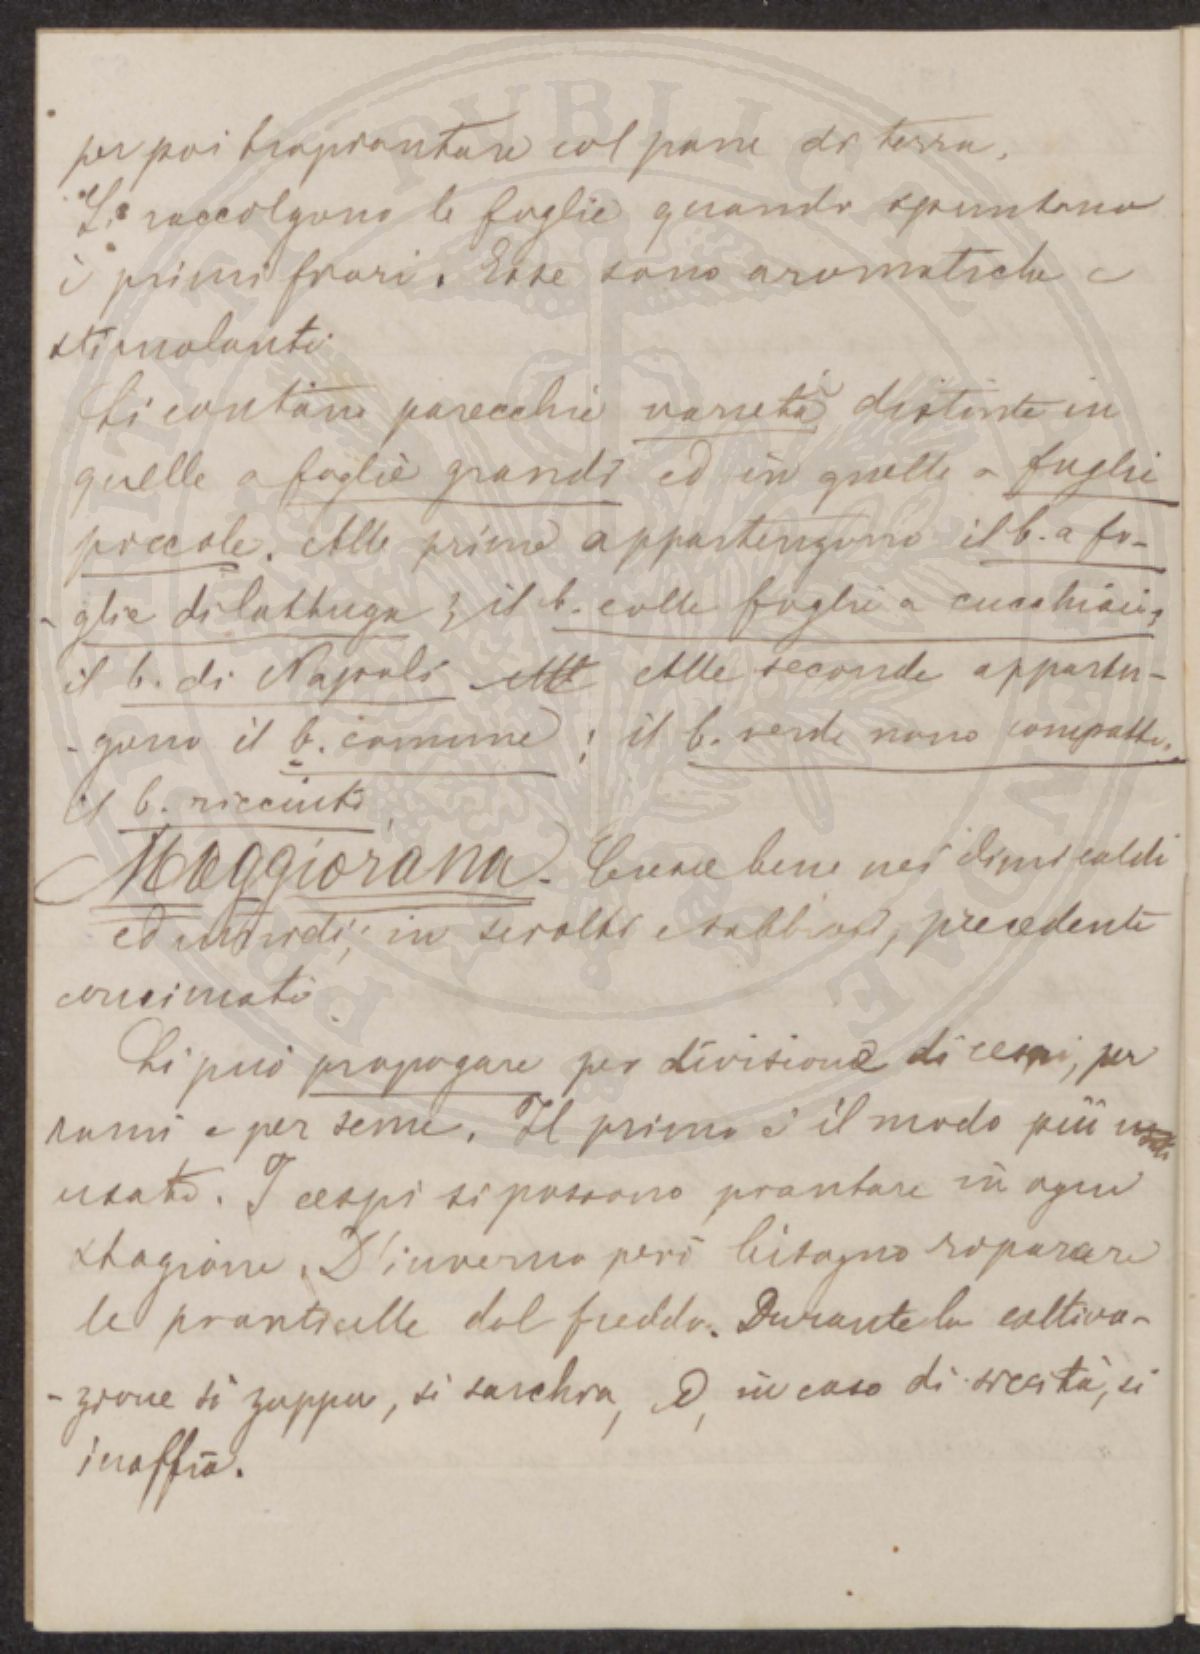 per poi trapiantare col pane di terra.
Si raccolgono le foglie quando spuntano
i primi fiori. Esse sono aromatiche e
stimolanti
Si contano parecchie varietà distinte in
quelle a foglie grandi ed in quelle a foglie
piccole. Alle prime appartengono il b. a fo-
-glie di lattuga; il b. colle foglie a cucchiaio;
il b. di Napoli Alle seconde apparten-
-gono il b. comune; il b. verde nano compatto.
il b. ricciuto
Maggiorana. Cresce bene nei climi caldi
ed in sciolti e sabbiosi, precedente
concimati
Si può propagare per divisione di cespi, per
rami e per seme. Il primo è il modo più
usato. I cespi si possono piantare in ogni
stagione. D'inverno però bisogna riparare
le pianticelle dal freddo. Durante la coltiva-
-zione si zappa, si sarchia, e, in caso di siccità, si
inaffia.
PUBLICI